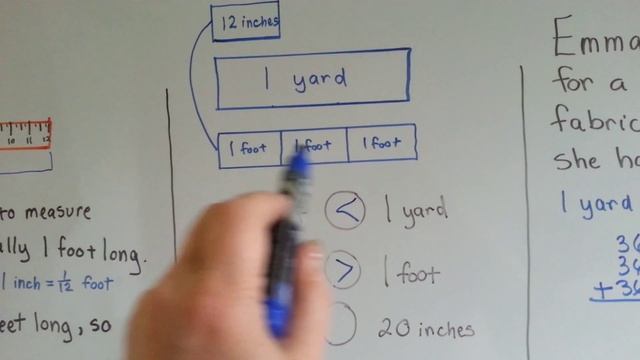 12 inches
1 yard
1 foot 1 foot 1 foot
10 11 12
to measure
ally 1 foot long.
1 inch = 1/12 foot
eet long, so
< 1 yard
> 1 foot
20 inches
Emma
for a
fabric
she ha
1 yard
36
36
+36